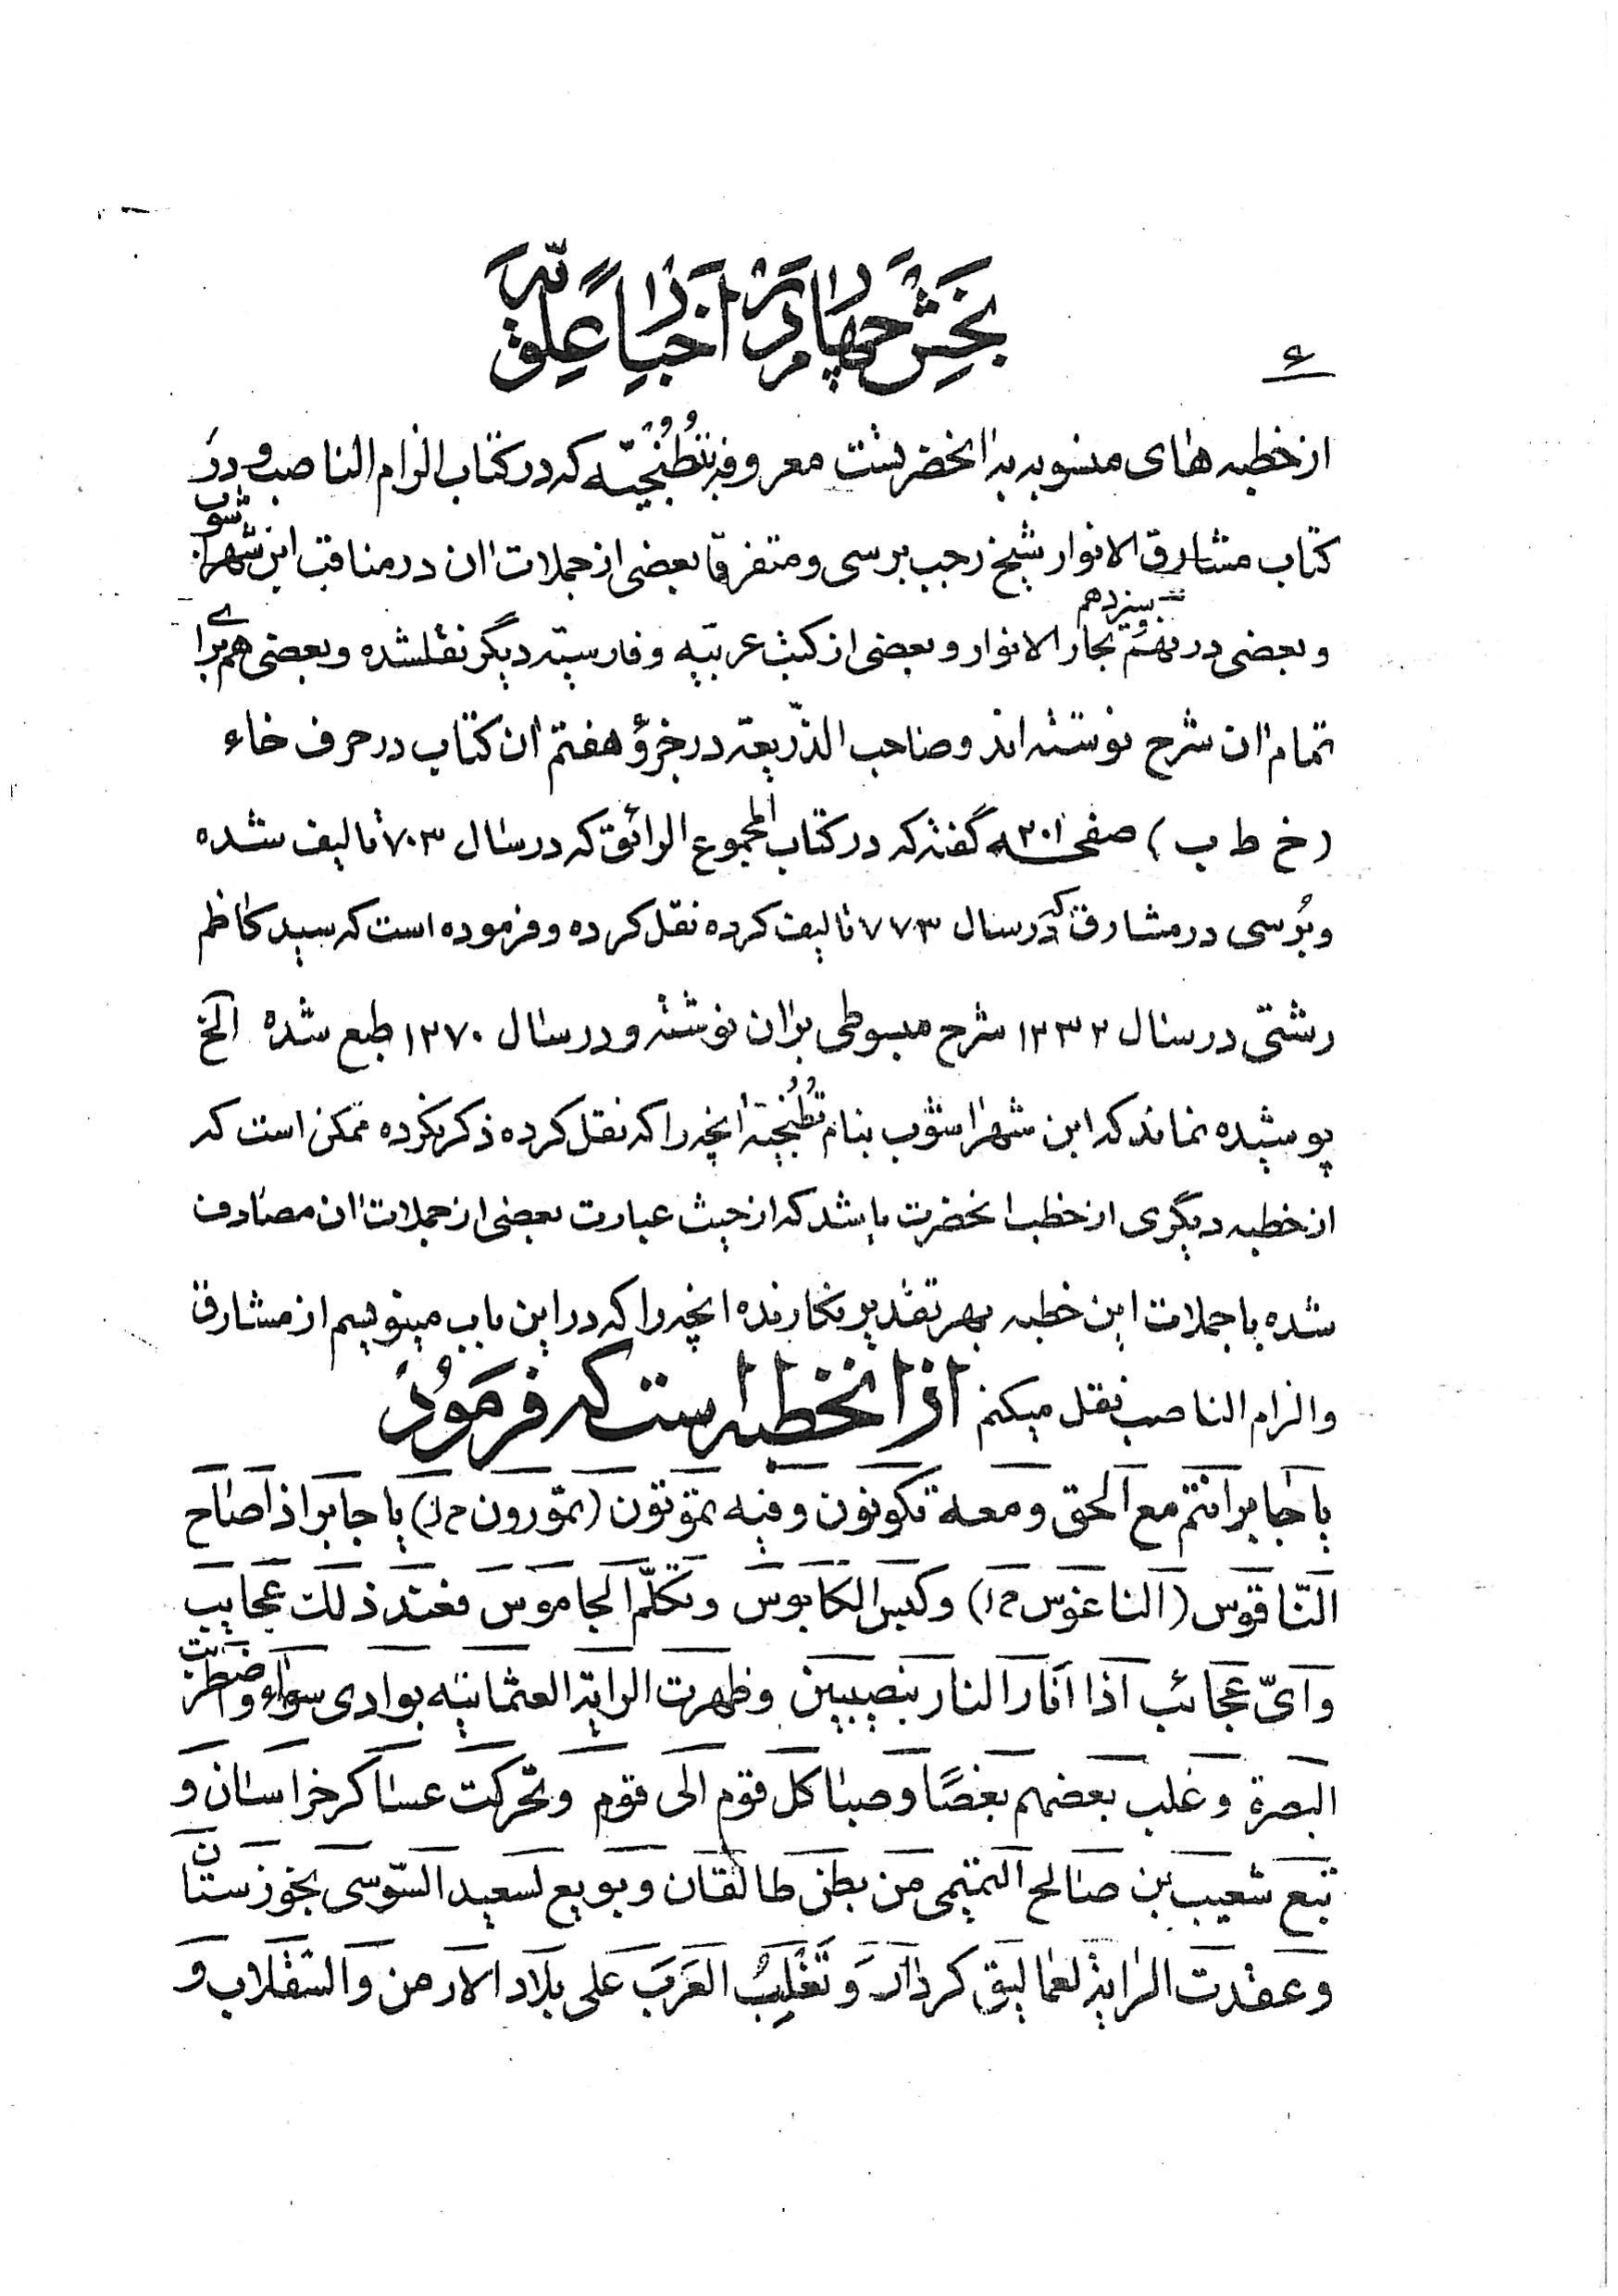 بخش چهارم در اخبار علویّه
۴
از خطبه های منسوبه به انحضرتست معروفه بتُطُنْجیّه که در کتاب الزام الناصب و در
کتاب مشارق الانوار شیخ رجب برسی و متفرقا بعضی از جملات ان در مناقب ابن شهراشوب
و بعضی در نهم و سیزدهم بحار الانوار و بعضی از کتب عربیّه و فارسیّه دیگر نقلشده و بعضی هم برای
تمام ان شرح نوشته اند و صاحب الذّریعه در جزؤ هفتم ان کتاب در حرف خاء
(خ ط ب) صفحه ۲۰۱ گفته که در کتاب المجموع الرائق که در سال ۷۰۳ تالیف شده
و بُرسی در مشارق که در سال ۷۷۳ تالیف کرده نقل کرده و فرموده است که سید کاظم
رشتی در سال ۱۲۳۲ شرح مبسوطی بران نوشته و در سال ۱۲۷۰ طبع شده الخ
پوشیده نماند که ابن شهراشوب بنام تُطُنْجیّه انچه را که نقل کرده ذکر نکرده ممکن است که
از خطبه دیگری از خطب انحضرت باشد که از حیث عبارت بعضی از جملات ان مصادف
شده با جملات این خطبه بهر تقدیر نگارنده انچه را که در این باب مینویسم از مشارق
و الزام الناصب نقل میکنم از انخطبه است که فرمود
یا جابر انتم مع الحق و معه تکونون و فیه تموتون (تمورون خ ل) یا جابر اذا صاح
النّاقوس (الناغوس خ ل) و کبس الکابوس و تکلّم الجاموس فعند ذلک عجایب
و ایّ عجائب اذا انار النار بنصیبین و ظهرت الرایة العثمانیّه بوادی سواء و اضطربت
البصرة و غلب بعضهم بعضًا و صبا کل قوم الی قوم و تحرکت عساکر خراسان و
تبع شعیب بن صالح التمیمی من بطن طالقان و بویع لسعید السّوسی بخوزستان
و عقدت الرایة لعمالیق کردان و تَغَلّبُ العَرَبَ علی بلاد الارمن و السقلاب و